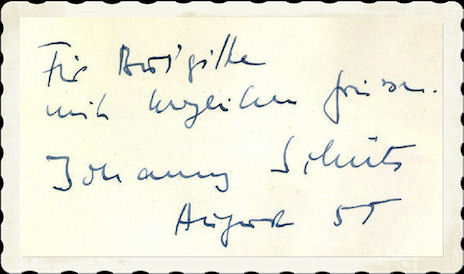 Für Brigitte
mit herzlichen Grüssen.
Johannes Schütz
August 55